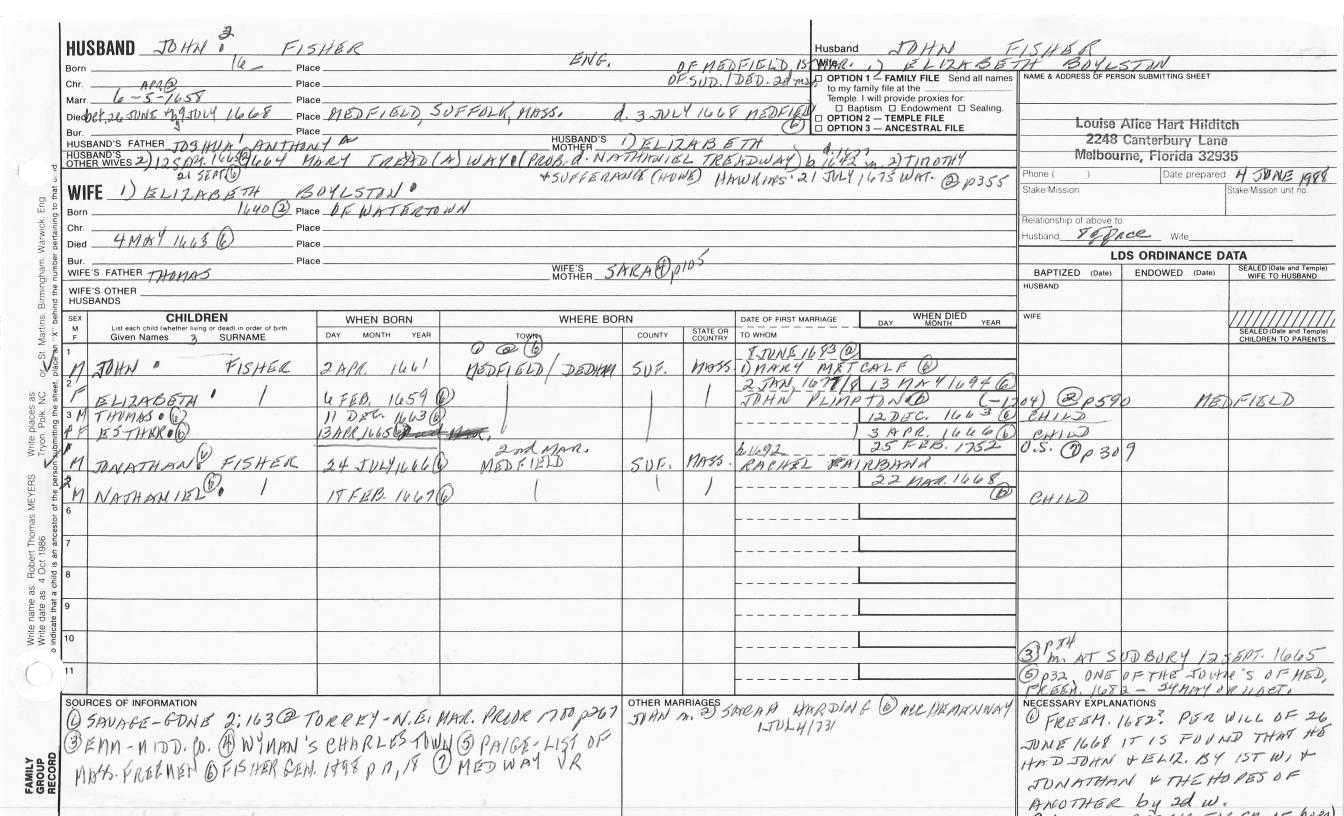 HUSBAND JOHN 2 FISHER
Husband JOHN FISHER
Born 16_ Place ENG. OF MEDFIELD, 1ST MAR. 1) ELIZABETH BOYLSTON
Chr. APR② Place OF SUD. / DED. 2d m.
Marr. 6-5-1658
Died 26 JUNE 9 JULY 1668 Place MEDFIELD, SUFFOLK, MASS. d. 3 JULY 1668 MEDFIELD ⑥
Bur. Place
OPTION 1 — FAMILY FILE Send all names
to my family file at the
Temple. I will provide proxies for:
Baptism Endowment Sealing.
OPTION 2 — TEMPLE FILE
OPTION 3 — ANCESTRAL FILE
NAME & ADDRESS OF PERSON SUBMITTING SHEET
Louise Alice Hart Hilditch
2248 Canterbury Lane
Melbourne, Florida 32935
HUSBAND'S FATHER JOSHUA ANTHONY HUSBAND'S MOTHER 1) ELIZABETH
HUSBAND'S OTHER WIVES 2) 12 SEPT. 1664 MARY TREAD(A)WAY (PROB. d. NATHANIEL TREADWAY) b. 1642 m. 2) TIMOTHY
21 SEPT ⑥ + SUFFERANCE (HOWE) HAWKINS 21 JULY 1675 WAT. ② p355
Phone ( ) Date prepared 4 JUNE 1988
Stake/Mission Stake/Mission unit no.
Relationship of above to:
Husband Wife
WIFE 1) ELIZABETH BOYLSTON
Born 1640 ② Place OF WATERTOWN
Chr. Place
Died 4 MAY 1663 ⑥ Place
Bur. Place
WIFE'S FATHER THOMAS WIFE'S MOTHER SARA ④ p105
WIFE'S OTHER HUSBANDS
LDS ORDINANCE DATA
BAPTIZED (Date) ENDOWED (Date) SEALED (Date and Temple) WIFE TO HUSBAND
HUSBAND
WIFE
SEALED (Date and Temple) CHILDREN TO PARENTS
SEX M F CHILDREN WHEN BORN WHERE BORN DATE OF FIRST MARRIAGE WHEN DIED
List each child (whether living or dead) in order of birth
Given Names 3 SURNAME DAY MONTH YEAR TOWN COUNTY STATE OR COUNTRY TO WHOM DAY MONTH YEAR
1 M JOHN FISHER 2 APR. 1661 MEDFIELD / DEDHAM SUF. MASS 8 JUNE 1683 ② 1) MARY METCALF ⑥
2 F ELIZABETH 6 FEB. 1659 ⑥ 2 JAN, 1677/8 13 MAY 1694 ⑥ JOHN PLIMPTON ⑥ (-1704) ② p590 MEDFIELD
3 M THOMAS ⑥ 11 DEC. 1663 ⑥ 12 DEC. 1663 ⑥ CHILD
F ESTHER ⑥ 13 APR. 1665 3 APR. 1666 ⑥ CHILD
M JONATHAN FISHER 24 JULY 1666 ⑥ 2nd MAR. MEDFIELD SUF. MASS. 1692 25 FEB. 1752 RACHEL FAIRBANK U.S. ⑦ p309
M NATHANIEL ⑥ 15 FEB. 1667 ⑥ 22 MAR. 1668 ⑥ CHILD
6
7
8
9
10
11
③ p84 m. AT SUDBURY 12 SEPT. 1665
⑤ p32, ONE OF THE JOHN'S OF MED,
FREEM. 1682 - 24 MAY OR
SOURCES OF INFORMATION
① SAVAGE-GONE 2; 163 ② TORREY-N.E. MAR. PRIOR 1700 p267
③ EMM-MIDD. CO. ④ WYMAN'S CHARLESTOWN ⑤ PAIGE-LIST OF
MASS. FREEMEN ⑥ FISHER GEN. 1898 p 17, 18 ⑦ MEDWAY VR
OTHER MARRIAGES
JOHN m. 2) SARAH HARDING ⑥
1 JULY
NECESSARY EXPLANATIONS
① FREEM. 1682? PER WILL OF 26
JUNE 1668 IT IS FOUND THAT HE
HAD JOHN & ELIZ. BY 1ST W. &
JONATHAN & THE HOPES OF
ANOTHER by 2d w.
FAMILY GROUP RECORD
Write name as: Robert Thomas MEYERS Write places as: Tryon, Polk, NC or St. Martins, Birmingham, Warwick, Eng
Write date as: 4 Oct 1986